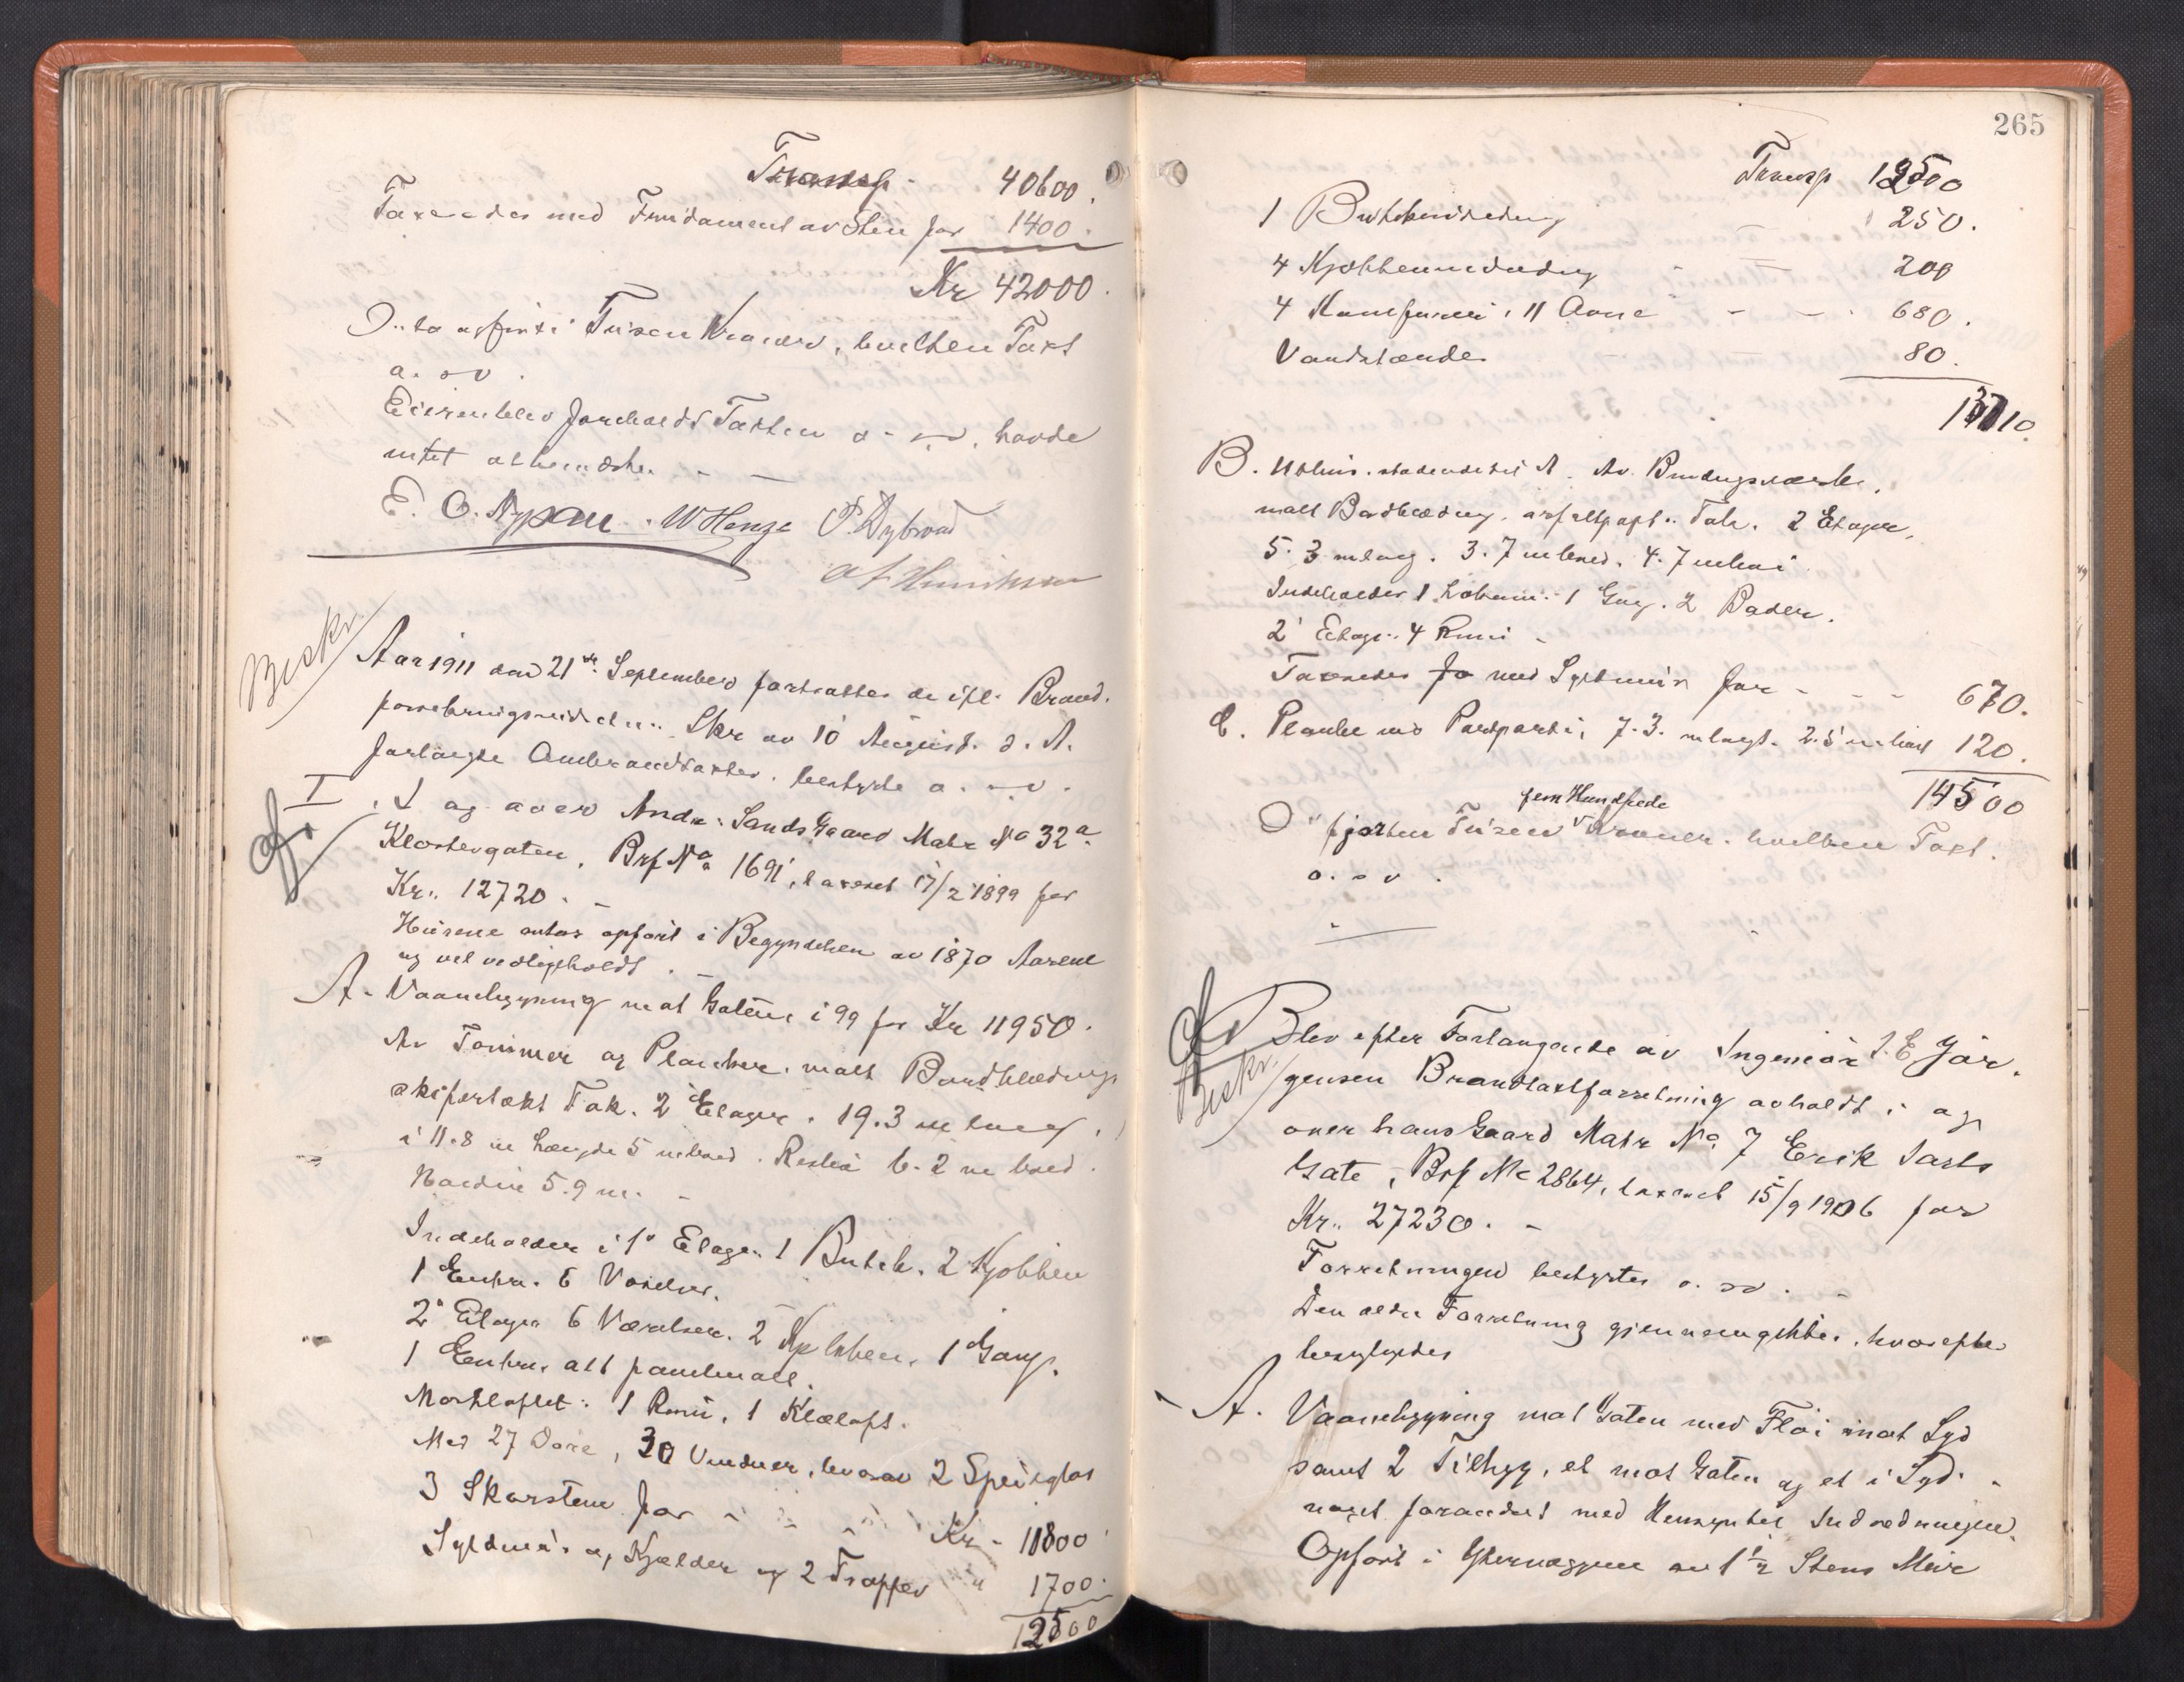 Transp - 40600.
Taxeredes med Fundament av Sten for 1400.
Kr 42000.
Tusen Kroner, hvilken Taxt
a. s v.
Eieren blev foreholdt Taxten o - s v. havde
intet at bemærke. - -
E. O. Nypan. W Henze P. Dybvad
Beskr.
Aar 1911 den 21de September fortsattes de ifl. Brand.
forsikringsindretn.. Skr av 10 August d. A.
forlangte Ombrandtaxter. bestyrte o. s v.
I
I og over Andr. Sands Gaard Matr No 32 a
Klostergaten, Brf No 1691, taxeret 17/2 1899 for
Kr.. 12720. -
Husene antas opført i Begyndelsen av 1870 Aarene
og vel vedligeholdt. -
A - Vaanebygning mot Gaten i 99 for Kr 11950.
Av Tømmer og Planker. malt Bordklædning
skifertækt Tak. 2 Etager. 19.3 m lang.
i 11.8 m Længde 5 m bred. Resten 6.2 m bred.
Høiden 5.9 m. -
Indeholder i 1' Etage. 1 Butik. 2 Kjøkken
1 Entre. 6 Værelser.
2' Etage 6 Værelser. 2 Kjøkken, 1 Gang.
1 Entre. alt panelmalt.
Mørkloftet: 1 Rum, 1 Klæloft.
Med 27 Døre, 30 Vinduer, hvorav 2 Speilglas
3 Skorstene for - - - Kr - 10800
Syldmur og Kjælder og 2 Trapper " 1700.
12500
265
Transp 12500
1 Butikindredning - 250.
4 Kjøkkenindredng - - 200
4 Kamferrør, 11 Ovne - - . 680.
Vandstænder 80.
13710.
B. Uthus. stødende til A. Av Bindingsværk.
malt Bordklædning. asfaltpapt.. Tak. 2 Etager,
5.3 m lang. 3.7 m bred. 4.7 m høi
Indeholder 1 Lokum. 1 Gang. 2 Boder.
2' Etage.. 4 Rum -
Taxeredes fo med Syldmur for - - - 670.
C. Planke med Portparti, 7.3. m langt. 2.5 m høit 120.
14500
fem Hundrede
fjorten Tusen v Kroner. hvilken Taxt.
o. s v.
Beskr.
Blev efter Forlangende av Ingeniør I. E Jør.
gensen Brandtaxtforretning avholdt i og
over hans Gaard Matr No 7 Erik Jarls
Gate, Brf No 2864, taxeret 15/9 1906 for
Kr.. 27230. -
Forretningen bestyrtes o. s v. -
Den ældre Forretning gjennemgikkes. hvorefter
besigtigedes
A. Vaanebygning mot Gaten med Fløi mot Syd
samt 2 Tilbyg, et mot Gaten og et i Syd -
noget forandret med Hensyn til Indredningen.
Opført i Ydervæggene av 1 1/2 Stens Mur